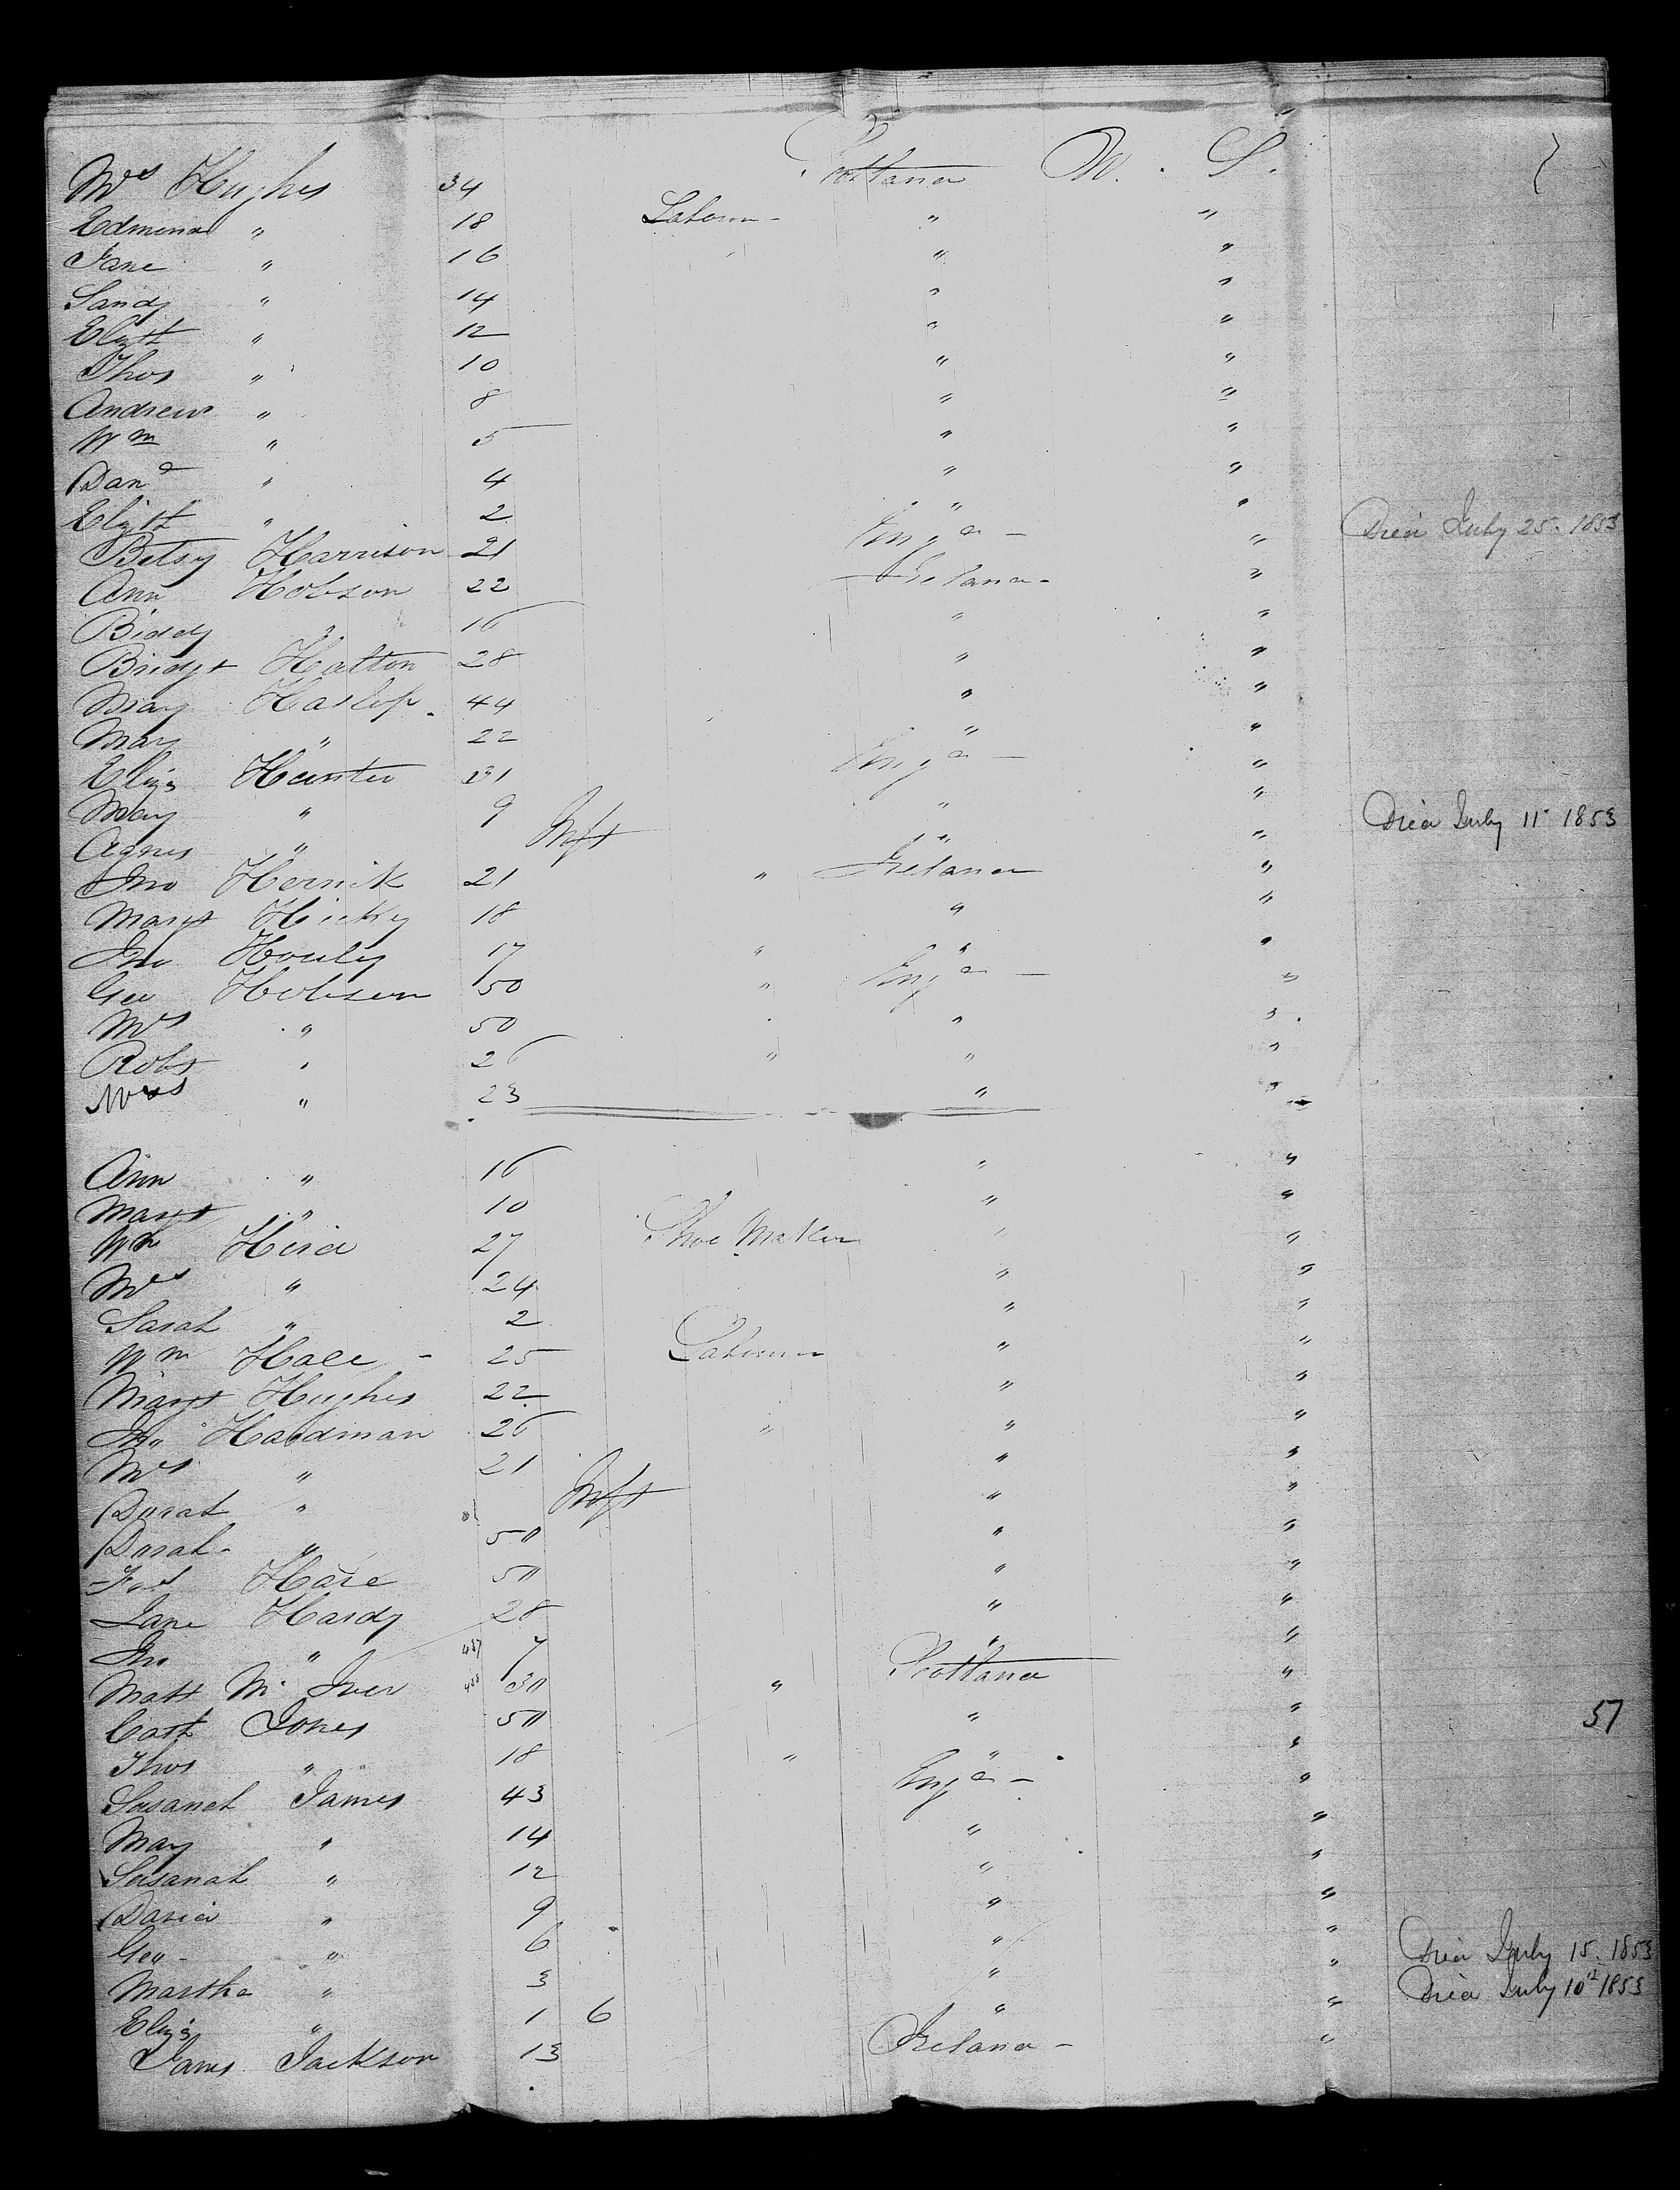 Mrs Hughes 34 Scotland U. S.
Edmund " 18 Labourer " "
Jane " 16 " "
Sandy " 14 " "
Elizth " 12 " "
Thos " 10 " "
Andrew " 8 " "
Wm " 5 " "
Dand " 4 " "
Elizth " 2 " "
Betsy Harrison 21 Engd " Died July 25. 1853
Ann Hobson 22 Ireland "
Biddy " 16 " "
Bridgt Hatton 28 " "
Mary Haslep 44 " "
Mary " 22 " "
Eliza Hunter 31 Engd "
Mary " 9 " "
Agnes " Inft " " Died July 11 1853
Jno Hernik 21 " Ireland "
Margt Hicky 18 " "
Jno Houly 17 " " "
Geo Hobson 50 " Engd "
Mrs " 50 " "
Robt " 26 " " "
Mrs " 23 " "
Ann " 16 " "
Margt " 10 " "
Wm Hird 27 Shoe Maker " "
Mrs " 24 " "
Sarah " 2 " "
Wm Hall 25 Labourer " "
Margt Hughes 22 " "
Jno Hardman 26 " " "
Mrs " 21 " "
Sarah " Inft " "
Sarah " 50 " "
Hare 50 " "
Jane Hardy 28 " "
Jno " 437 7 " "
Matt Mc Iver 438 30 " Scotland "
Cath Jones 50 " " 57
Thos " 18 " " "
Susanah James 43 Engd "
Mary " 14 " "
Susanah " 12 " "
David " 9 " "
Geo " 6 " "
Martha " 3 " " Died July 15. 1853
Eliza " 1 6 " " Died July 10th 1853
James Jackson 13 Ireland "